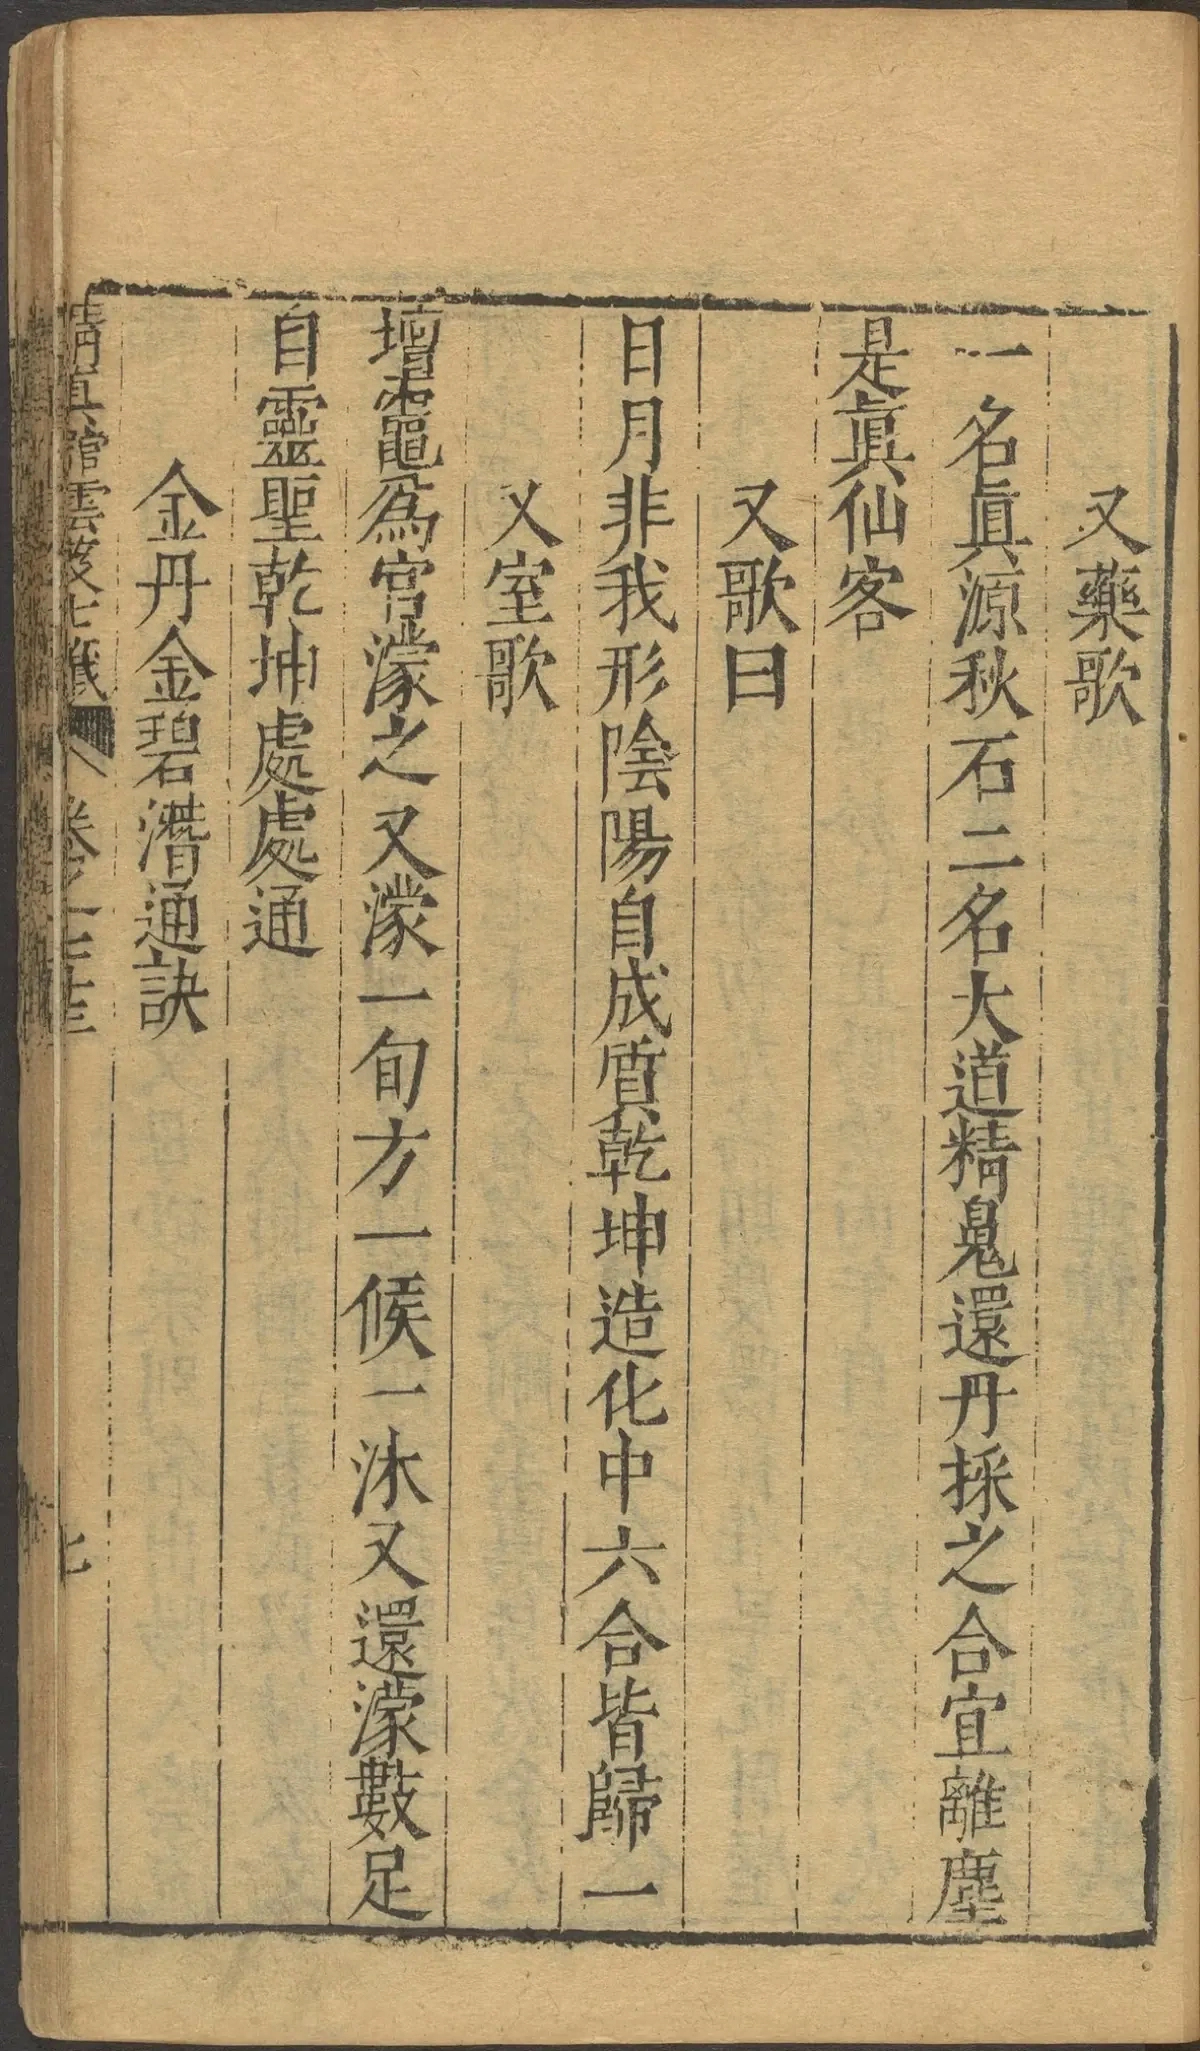 又藥歌
一名眞源秋石二名大道精鬼還丹採之合宜離塵
是眞仙客
又歌曰
日月非我形陰陽自成質乾坤造化中六合皆歸一
又室歌
壇竈爲宫濛之又濛一旬方一候一沐又還濛數足
自靈聖乾坤處處通
金丹金碧潛通訣
清眞館雲笈七籤 卷之七十三 七